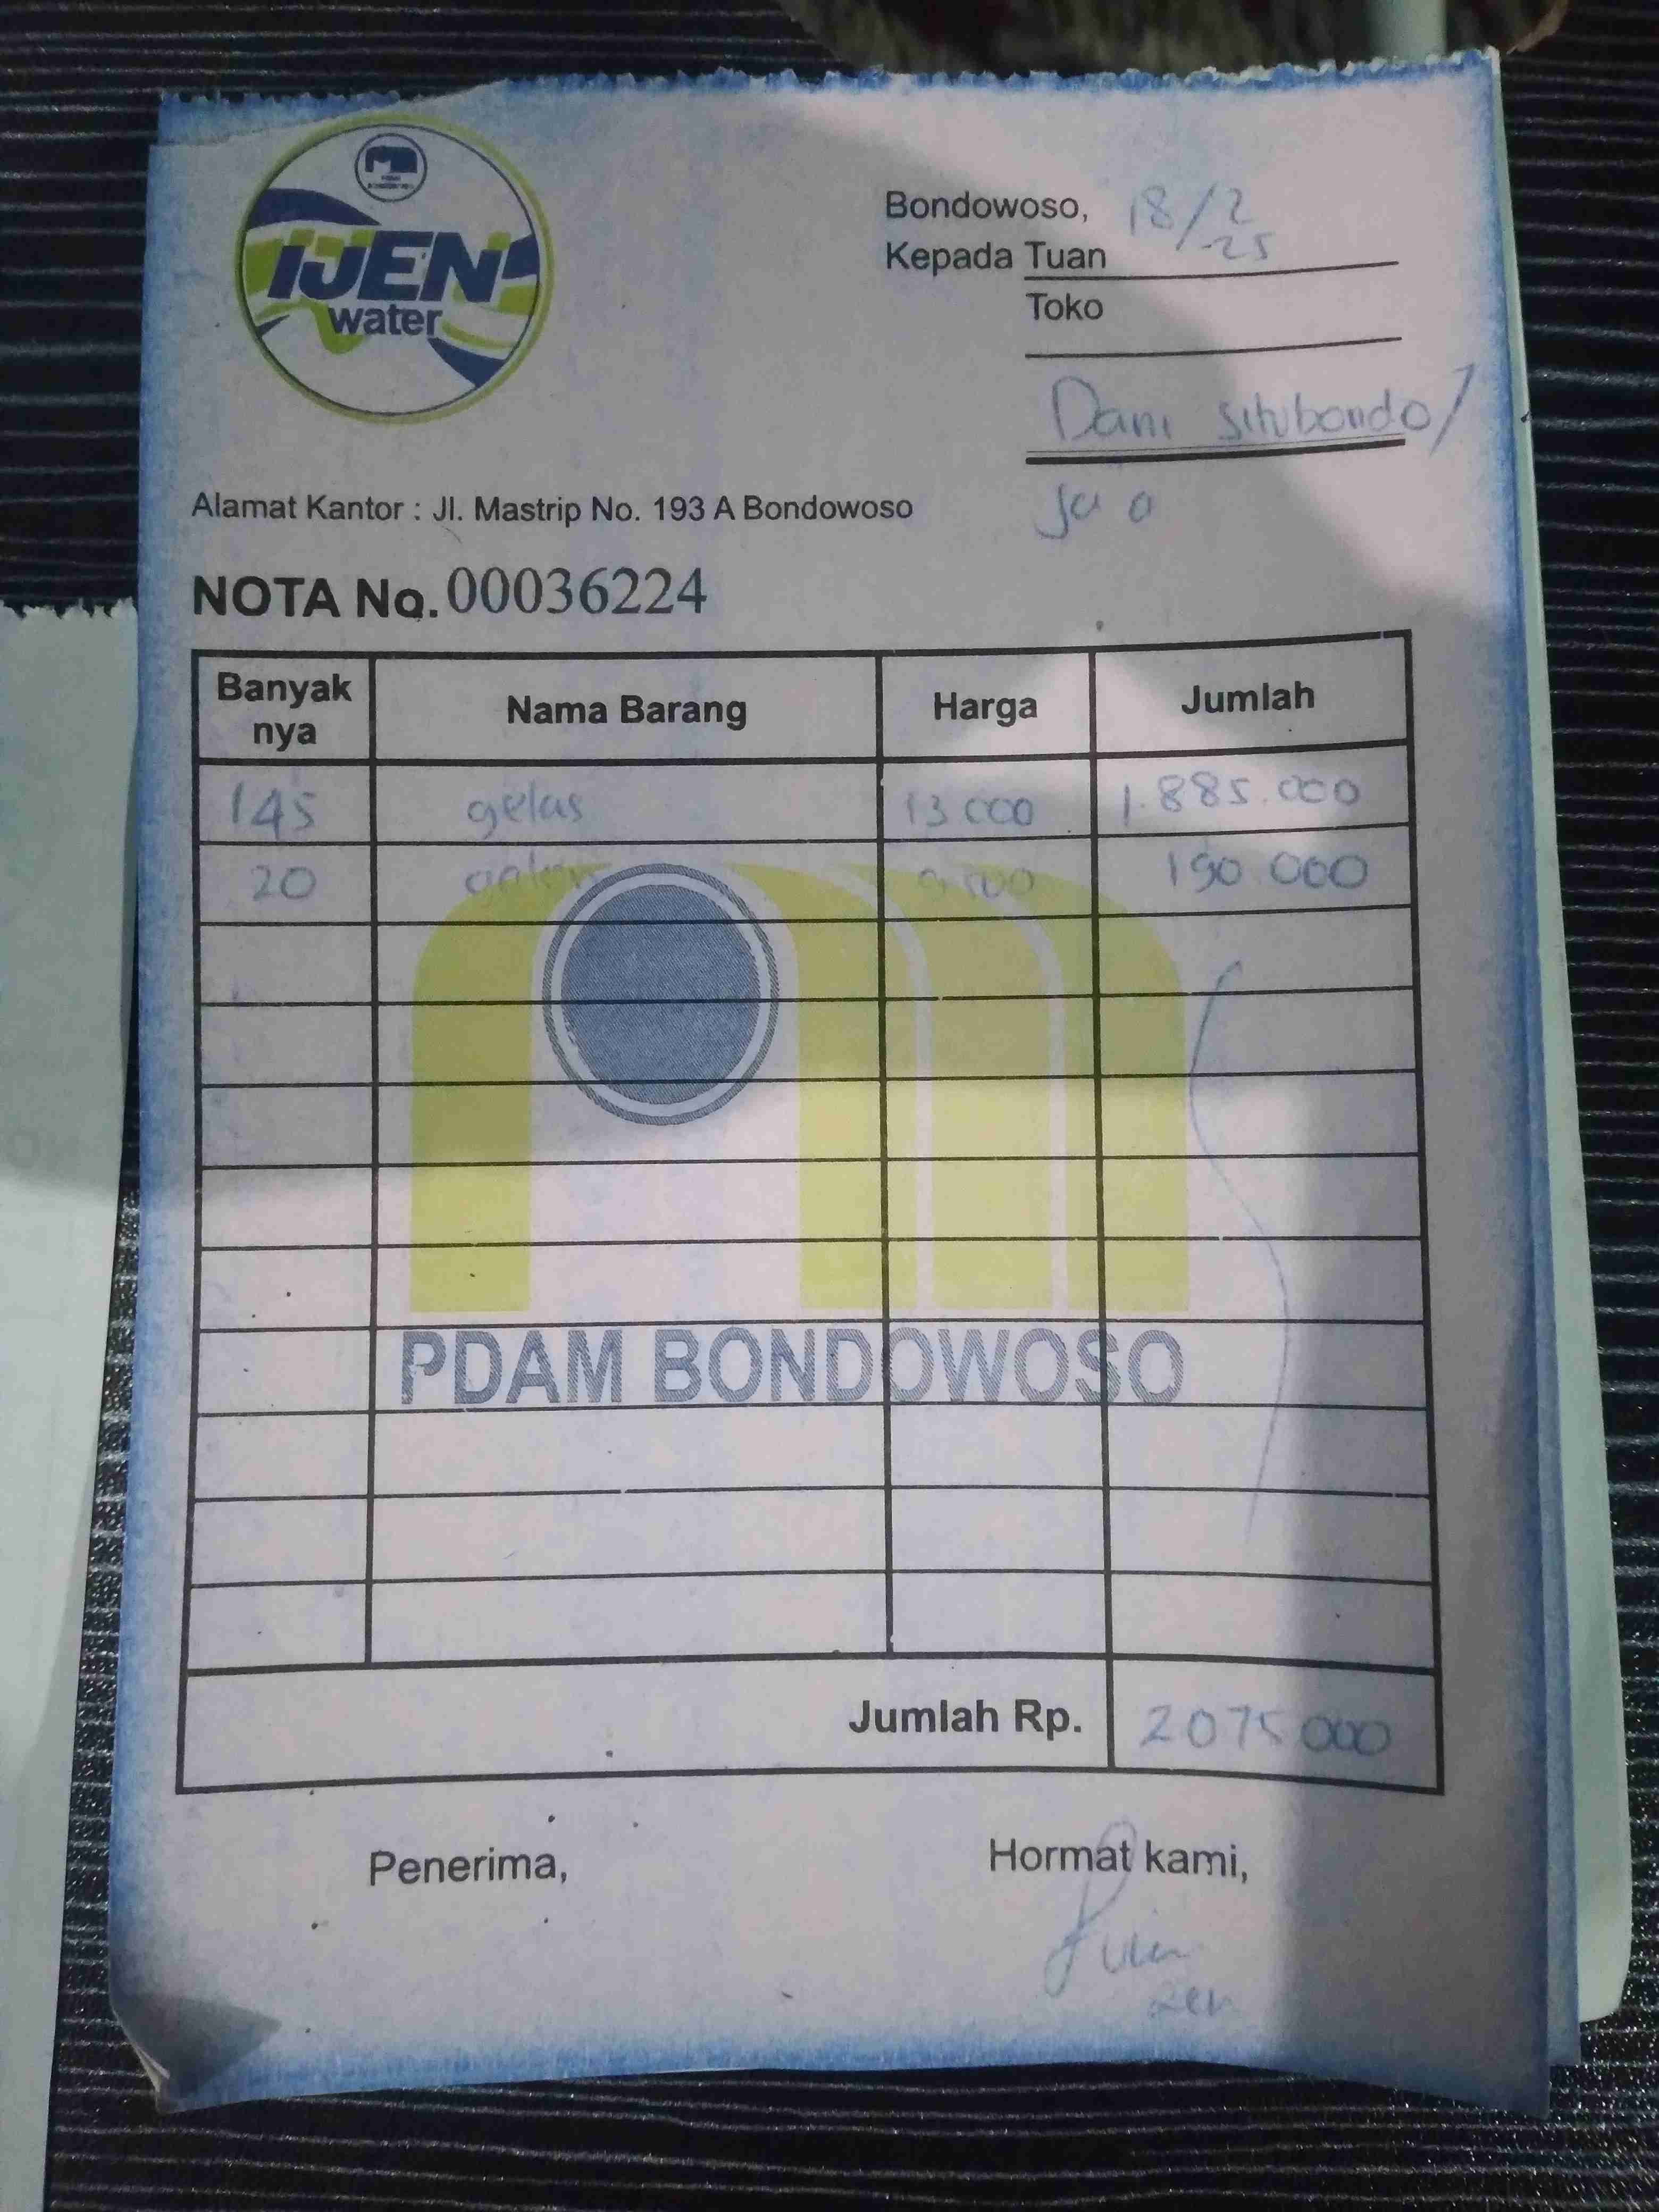 IJEN
water
Bondowoso, 18/2
25
Kepada Tuan
Toko
Dani situbondo/
Alamat Kantor : Jl. Mastrip No. 193 A Bondowoso
NOTA No. 00036224
Banyak nya Nama Barang Harga Jumlah
145 gelas 13 000 1.885.000
20 galon 9.500 190.000
PDAM BONDOWOSO
Jumlah Rp. 2075000
Penerima, Hormat kami,